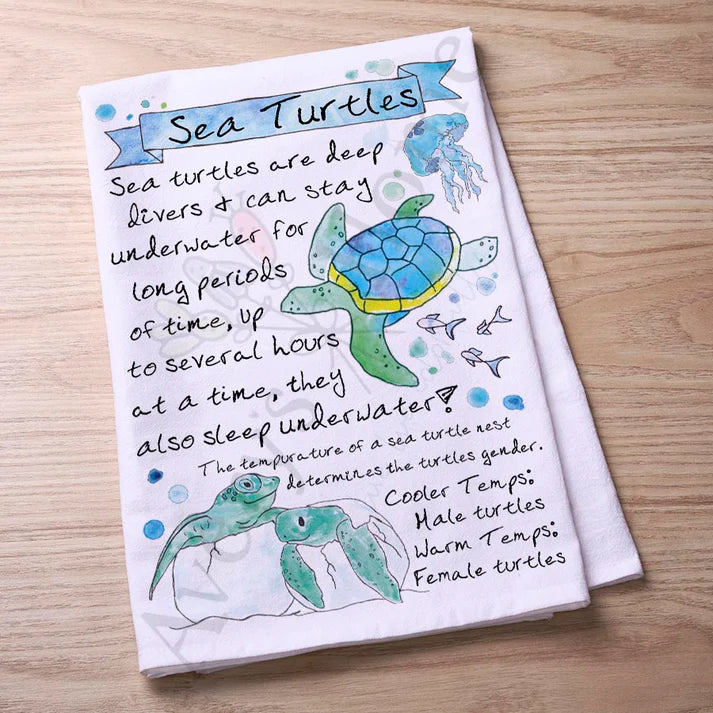 Sea Turtles
Sea turtles are deep
divers & can stay
underwater for
long periods
of time, up
to several hours
at a time, they
also sleep underwater!
The tempurature of a sea turtle nest
determines the turtles gender.
Cooler Temps:
Male turtles
Warm Temps:
Female turtles